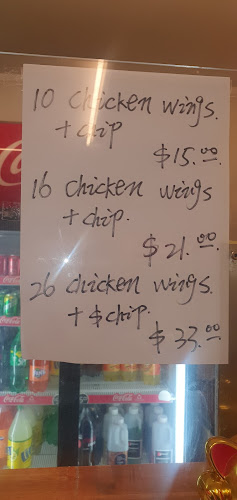 10 chicken wings.
+ chip
$15.00.
16 chicken wings
+ chip.
$21.00.
26 chicken wings.
+ $ chip.
$33.00
Coca-Cola